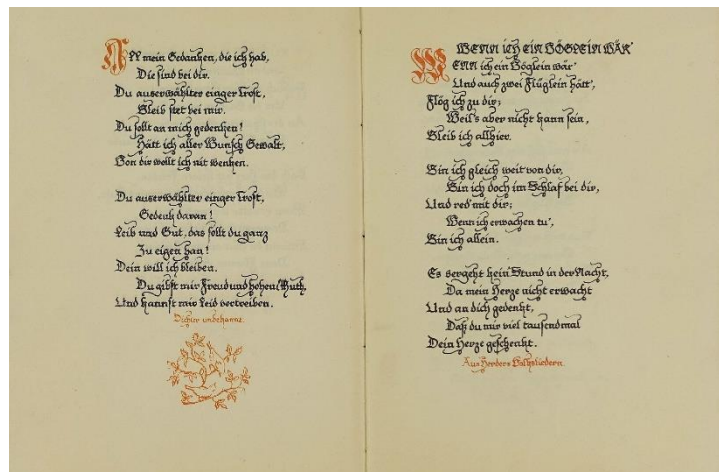 All mein Gedanken, die ich hab,
Die sind bei dir.
Du auserwählter einger Trost,
Bleib stet bei mir.
Du sollt an mich gedenken!
Hätt ich aller Wunsch Gewalt,
Von dir wollt ich nit wenken.
Du auserwählter einger Trost,
Gedenk daran!
Leib und Gut, das sollt du ganz
Zu eigen han!
Dein will ich bleiben.
Du gibst mir Freud und hohen Muth,
Und kannst mir Leid vertreiben.
Dichter unbekannt.
WENN ich EIN VÖGLEIN WÄR'
WENN ich ein Vöglein wär'
Und auch zwei Flüglein hätt',
Flög ich zu dir;
Weil's aber nicht kann sein,
Bleib ich allhier.
Bin ich gleich weit von dir,
Bin ich doch im Schlaf bei dir,
Und red' mit dir;
Wenn ich erwachen tu',
Bin ich allein.
Es vergeht kein Stund in der Nacht,
Da mein Herze nicht erwacht
Und an dich gedenkt,
Daß du mir viel tausendmal
Dein Herze geschenkt.
Aus Herders Volksliedern.